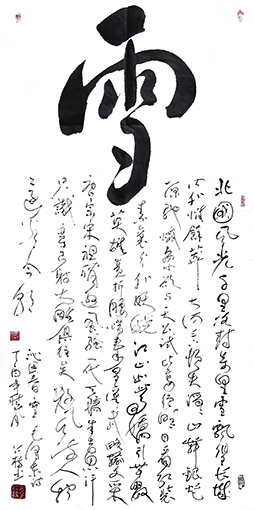 雪
北國风光千里冰封万里雪飘望长城
内外惟余莽莽大河上下顿失滔滔山舞银蛇
原驰蜡象欲与天公试比高须晴日看红装
素裹分外妖娆江山如此多娇引无数
英雄竞折腰惜秦皇汉武略输文采
唐宗宋祖稍逊风骚一代天骄成吉思汗
只识弯弓射大雕俱往矣数风流人物
还看今朝
沁园春雪毛泽东词
丁酉年